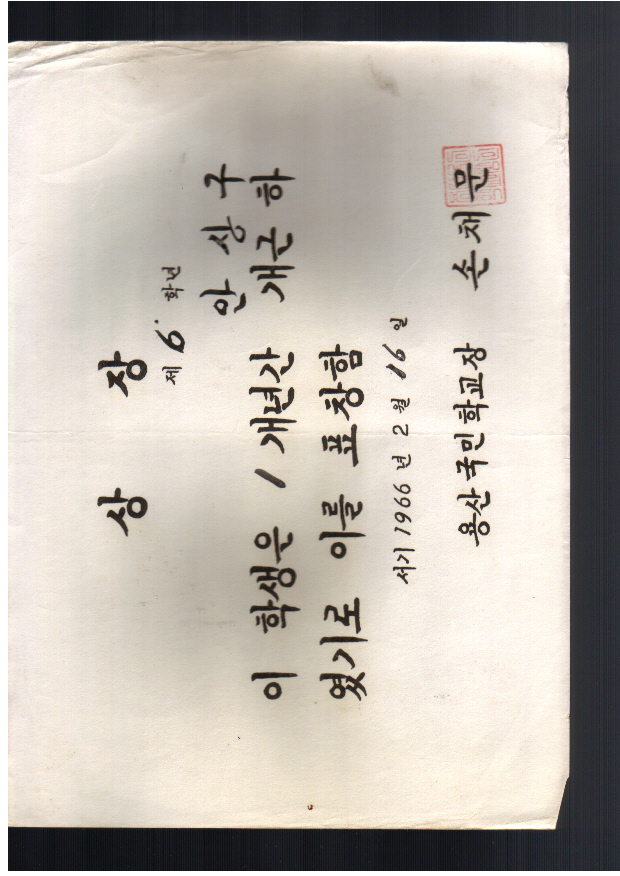 상 장
제 6 학년
안 상 구
이 학생은 1 개년간 개근 하
였기로 이를 표창함
서기 1966 년 2 월 16 일
용산국민학교장 손채문